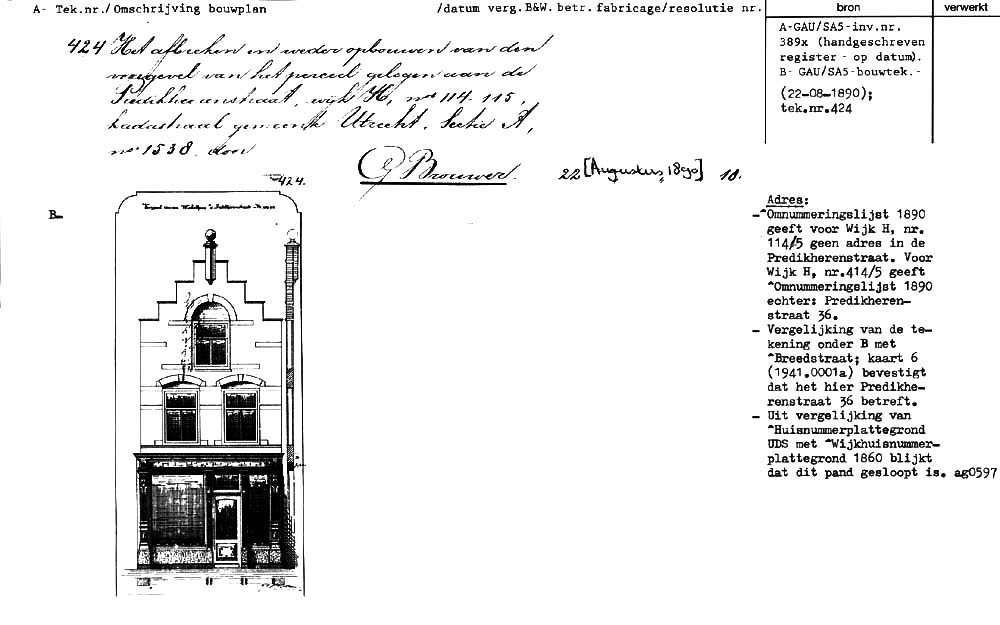 A- Tek.nr./ Omschrijving bouwplan /datum verg.B&W. betr. fabricage/resolutie nr. bron verwerkt
424 Het afbreken en weder opbouwen van den
voorgevel van het perceel gelegen aan de
Predikheerenstraat, wijk H, nos 114. 115,
kadastraal gemeente Utrecht, Sectie A,
no 1538 door
G Brouwer. 22 [Augustus, 1890] 18.
A-GAU/SA5-inv.nr.
389x (handgeschreven
register - op datum).
B- GAU/SA5-bouwtek.-
(22-08-1890);
tek.nr.424
B-
424.
Adres:
-^Omnummeringslijst 1890
geeft voor Wijk H, nr.
114/5 geen adres in de
Predikherenstraat. Voor
Wijk H, nr.414/5 geeft
^Omnummeringslijst 1890
echter: Predikheren-
straat 36.
- Vergelijking van de te-
kening onder B met
^Breedstraat; kaart 6
(1941.0001a) bevestigt
dat het hier Predikhe-
renstraat 36 betreft.
- Uit vergelijking van
^Huisnummerplattegrond
UDS met ^Wijkhuisnummer-
plattegrond 1860 blijkt
dat dit pand gesloopt is. ag0597